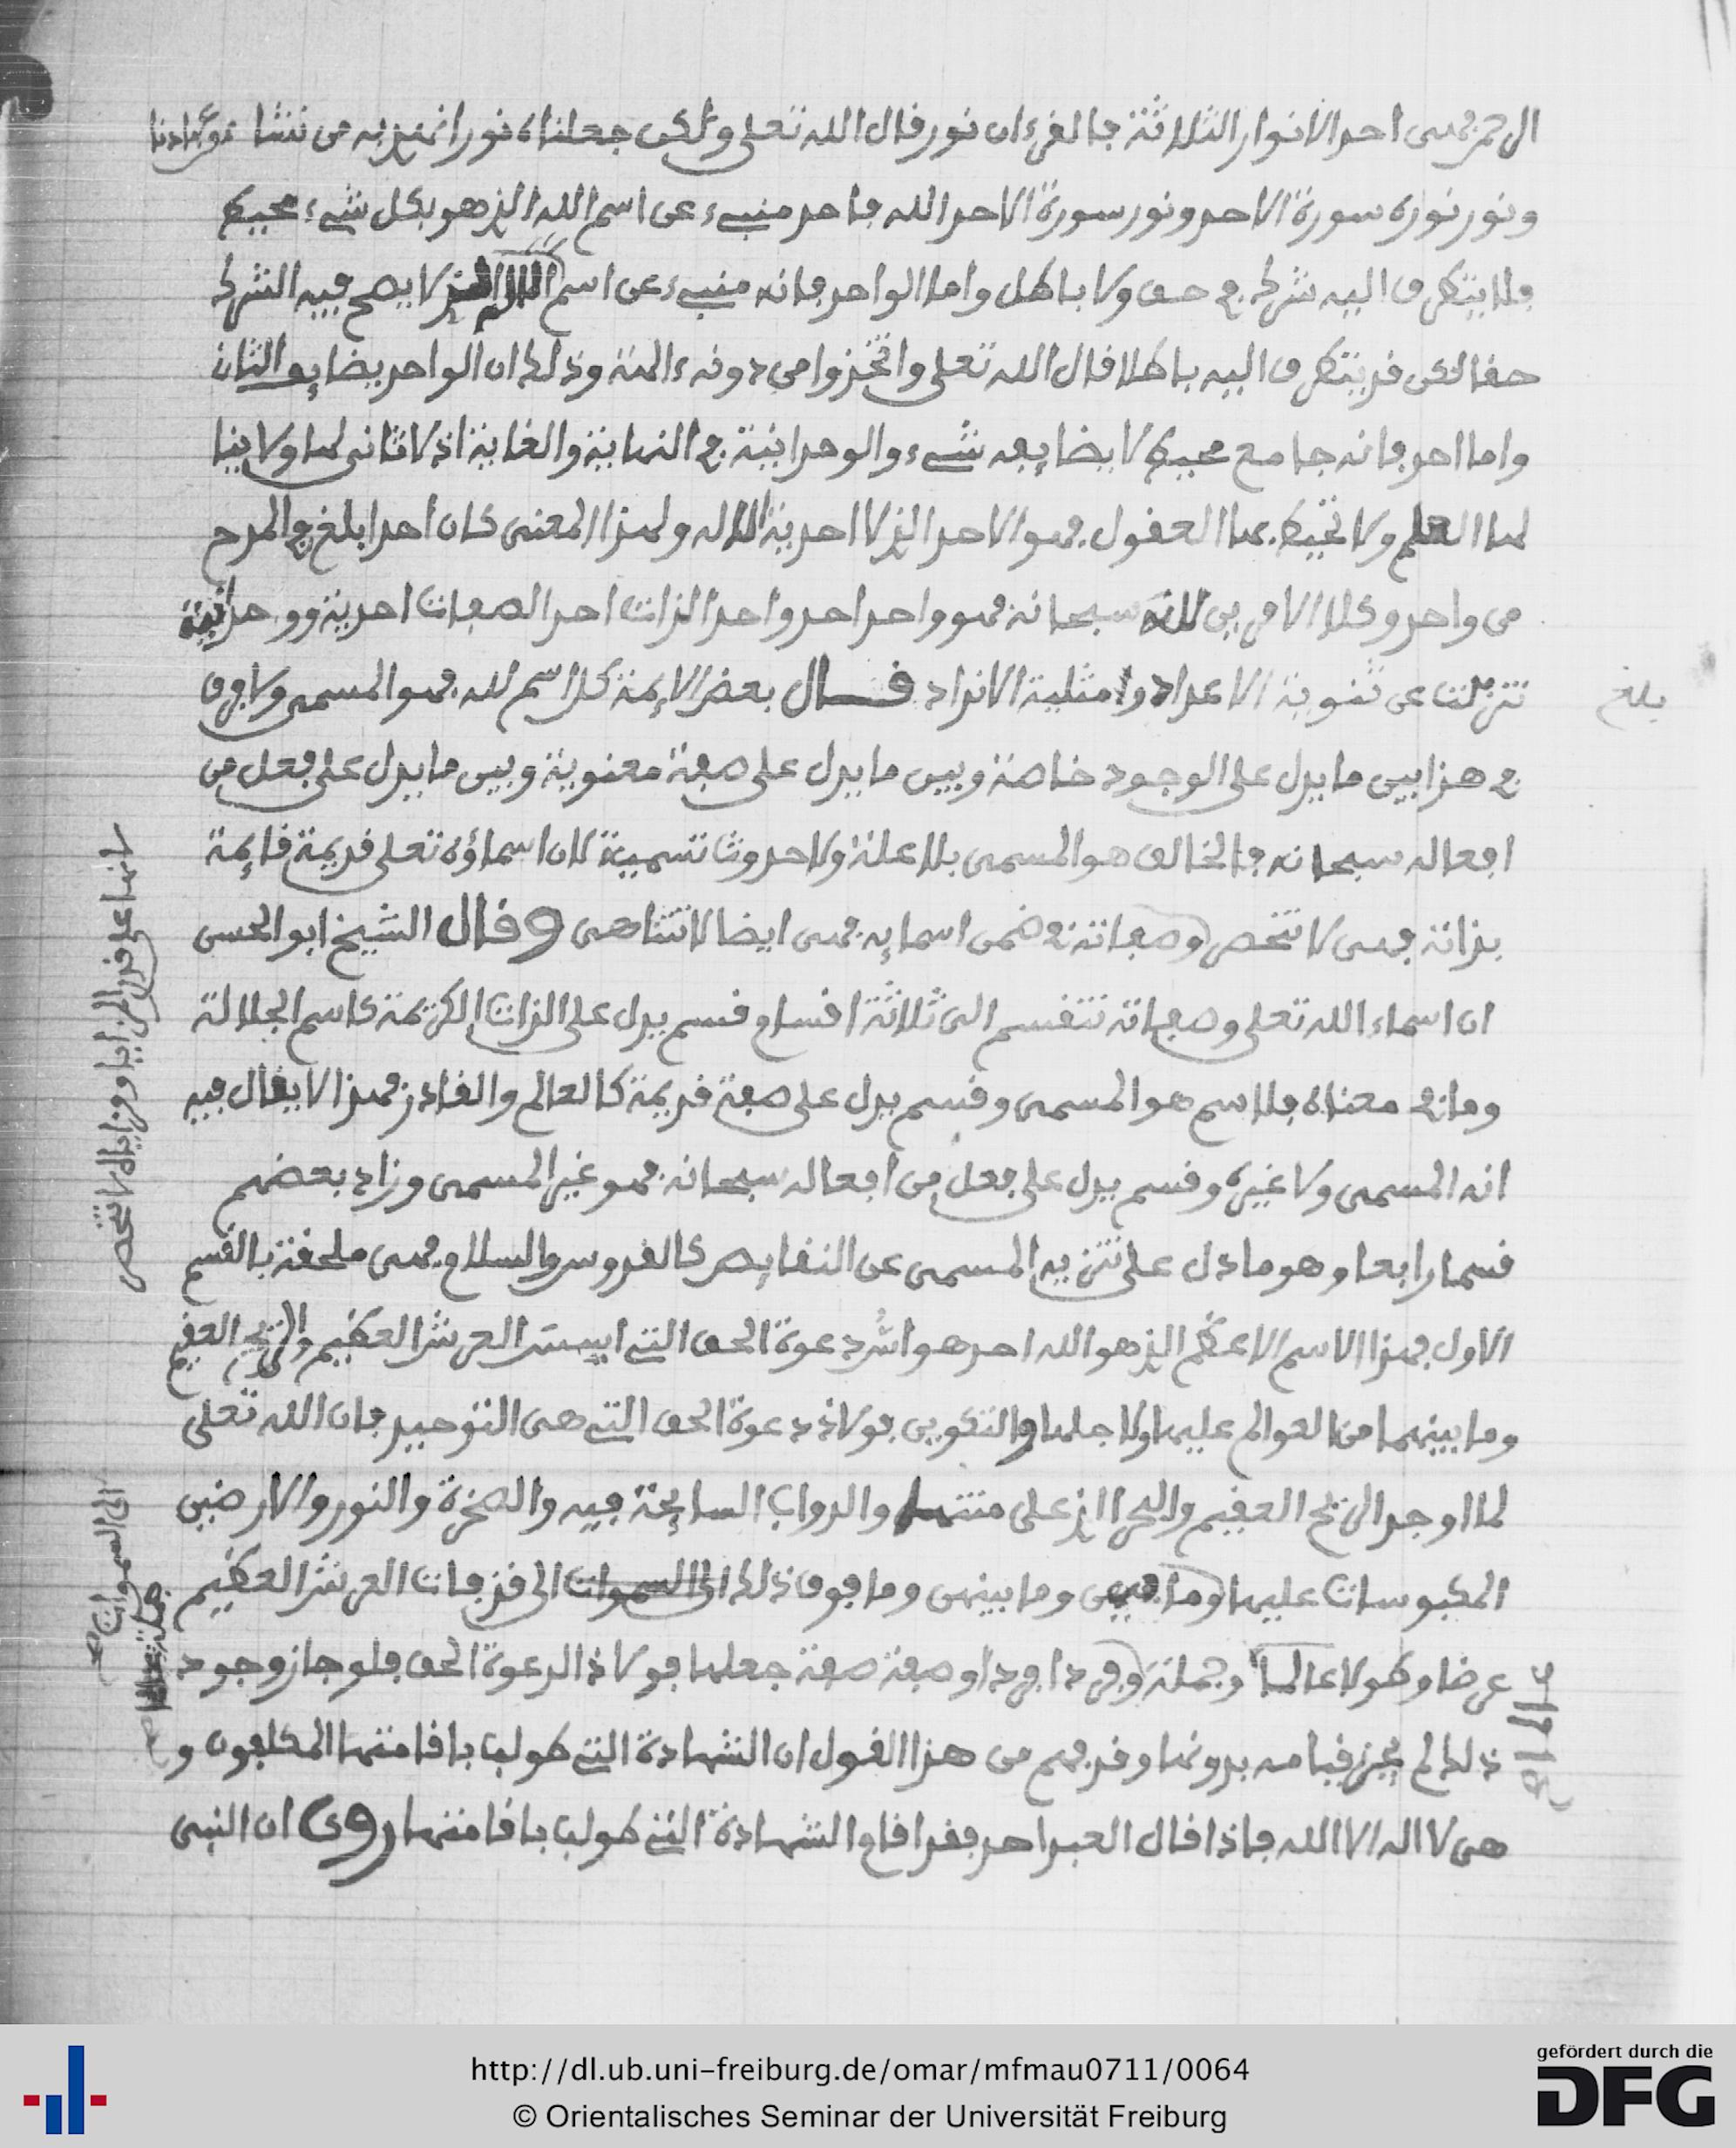 الرحمن فهى احد الانوار الثلاثة فالقرءان نور قال الله تعلى ولكن جعلناه نورا نهدى به من نشا من عبادنا
ونور نوره سورة الاحد ونور سورة الاحد الله فاحد منبىء عن اسم الله الذى هو بكل شىء محيط
فلا يتطرق اليه شرك فى حق ولا باطل واما الواحد فانه منبىء عن اسم الاله الذى لا يصح فيه الشرك
حقا لكن قد يتطرق اليه باطلا قال الله تعلى واتخذوا من دونه ءالهة وذلك ان الواحد يضايفه الثان
واما احد فانه جامع محيط لا يضايفه شىء والوحدانية فى النهاية والغاية اذ لا ثانى لها ولا ينا
لها العلم ولا تحيط بها العقول فهو الاحد الذى لا احدية الا له ولهذا المعنى كان احد ابلغ فى المدح
من واحد وكلا الامرين لله سبحانه فهو واحد احد واحد الذات احد الصفات احدية ووحدانية
تنزهت عن ثنوية الاعداد وامثلية الانداد قال بعض الايمة كل اسم لله فهو المسمى ولا فرق
فى هذا بين ما يدل على الوجود خاصة وبين ما يدل على صفة معنوية وبين ما يدل على فعل من
افعاله سبحانه فالخالق هو المسمى بلا علة ولا حدوث تسمية لان اسماؤه تعلى قديمة قايمة
بذاته فهى لا تحصى وصفاته فى ضمن اسمايه فهى ايضا لا تتناهى وقال الشيخ ابو الحسن
ان اسماء الله تعلى وصفاته تنقسم الى ثلاثة اقسام قسم يدل على الذات الكريمة كاسم الجلالة
وما فى معناه فالاسم هو المسمى وقسم يدل على صفة قديمة كالعالم والقادر فهذا لا يقال فيه
انه المسمى ولا غيره وقسم يدل على فعل من افعاله سبحانه فهو غير المسمى وزاد بعضهم
قسما رابعا وهو ما دل على تنزيه المسمى عن النقايص كالقدوس والسلام فهى ملحقة بالقسم
الاول فهذا الاسم الاعظم الذى هو الله احد هو اشد دعوة الحق التى اسست العرش العظيم والريح العقيم
وما بينهما من العوالم عليها ولاجلها والتكوين فولاذ دعوة الحق التى هى التوحيد فان الله تعلى
لما اوجد الريح العقيم والبحر الذى على متنها والدواب السابحة فيه والصخرة والنور والارضين
المكبوسات عليها وما فيهن وما بينهن وما فوق ذلك الى السموات الى قذفات العرش العظيم
عرضا وطولا عالما وجملة وفردا فردا وصفة صفة جعلها فولاذ الدعوة الحق فلو جاز وجود
ذلك لم يجز قيامه بدونها وقد فهم من هذا القول ان الشهادة التى طولب باقامتها المكلفون و
هى لا اله الا الله فاذا قال العبد احد فقد اقام الشهادة التى طولب باقامتها روى ان النبى
بلغ
لانها على قدر المزايا ومزاياه لا تحصى
الى السموات
جملة
http://dl.ub.uni-freiburg.de/omar/mfmau0711/0064
© Orientalisches Seminar der Universität Freiburg
gefördert durch die
DFG